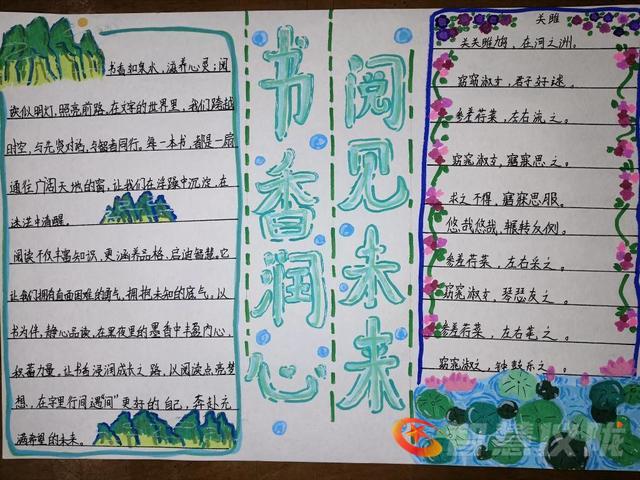 书香如泉水，滋养心灵；阅
读似明灯，照亮前路。在文字的世界里，我们跨越
时空，与先贤对话，与智者同行。每一本书，都是一扇
通往广阔天地的窗，让我们在浮躁中沉淀，在
迷茫中清醒。
阅读不仅丰富知识，更涵养品格，启迪智慧。它
让我们拥有直面困难的勇气，拥抱未知的底气。以
书为伴，静心品读，在黑夜里的墨香中丰盈内心，
积蓄力量。让书香浸润成长之路，以阅读点亮梦
想，在字里行间遇"间"更好的自己，奔赴充
满希望的未来。
书香润心
阅见未来
关雎
关关雎鸠，在河之洲。
窈窕淑女，君子好逑。
参差荇菜，左右流之。
窈窕淑女，寤寐思之。
求之不得，寤寐思服。
悠哉悠哉，辗转反侧。
参差荇菜，左右采之。
窈窕淑女，琴瑟友之。
参差荇菜，左右芼之。
窈窕淑女，钟鼓乐之。
智慧仪陇